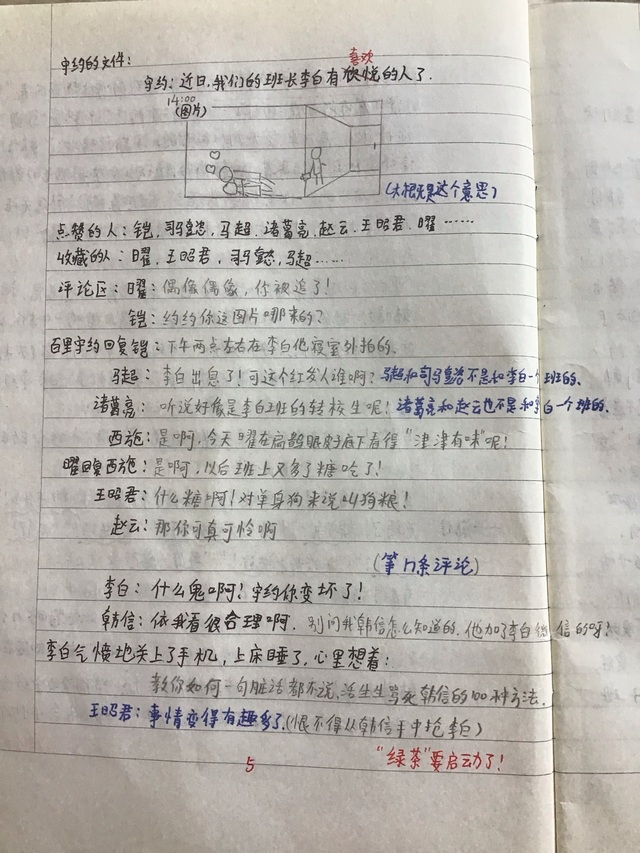 守约的文件:
喜欢
守约: 近日,我们的班长李白有欣悦的人了.
14:00
(图片)
(木根无是这个意思)
点赞的人: 铠,司马懿,马超,诸葛亮,赵云,王昭君,曜……
收藏的人: 曜,王昭君,司马懿,马超……
评论区: 曜: 偶像偶像,你被追了!
铠: 约约你这图片哪来的?
百里守约回复铠: 下午两点左右在李白他寝室外拍的.
马超: 李白出息了!可这个红发人谁啊? 马超和司马懿不是和李白一个班的.
诸葛亮: 听说好像是李白班的转校生呢! 诸葛亮和赵云也不是和李白一个班的.
西施: 是啊,今天曜在扁鹊眼皮底下看得"津津有味"呢!
曜回复西施: 是啊,以后班上又多了糖吃了!
王昭君: 什么糖啊!对单身狗来说叫狗粮!
赵云: 那你可真可怜啊
(第n条评论)
李白: 什么鬼啊!守约你变坏了!
韩信: 依我看很合理啊. 别问我韩信怎么知道的,他加了李白微信的呀?
李白气愤地关上了手机,上床睡了,心里想着:
教你如何一句脏话都不说,活生生骂死韩信的100种方法.
王昭君: 事情变得有趣多了.(恨不得从韩信手中抢李白)
5
"绿茶"要启动了!